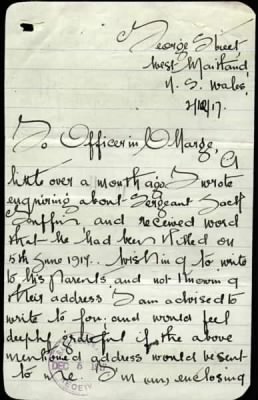 George Street,
West Maitland,
N. S. Wales,
2/12/17.
To Officer in Charge,
A
little over a month ago I wrote
enquiring about Sergeant Jack
and received word
that he had been killed on
5th June 1917. Wishing to write
to his Parents and not knowing
their address I am advised to
write to you, and would feel
deeply grateful if the above
mentioned address would be sent
to me. I'm enclosing
DEC 8